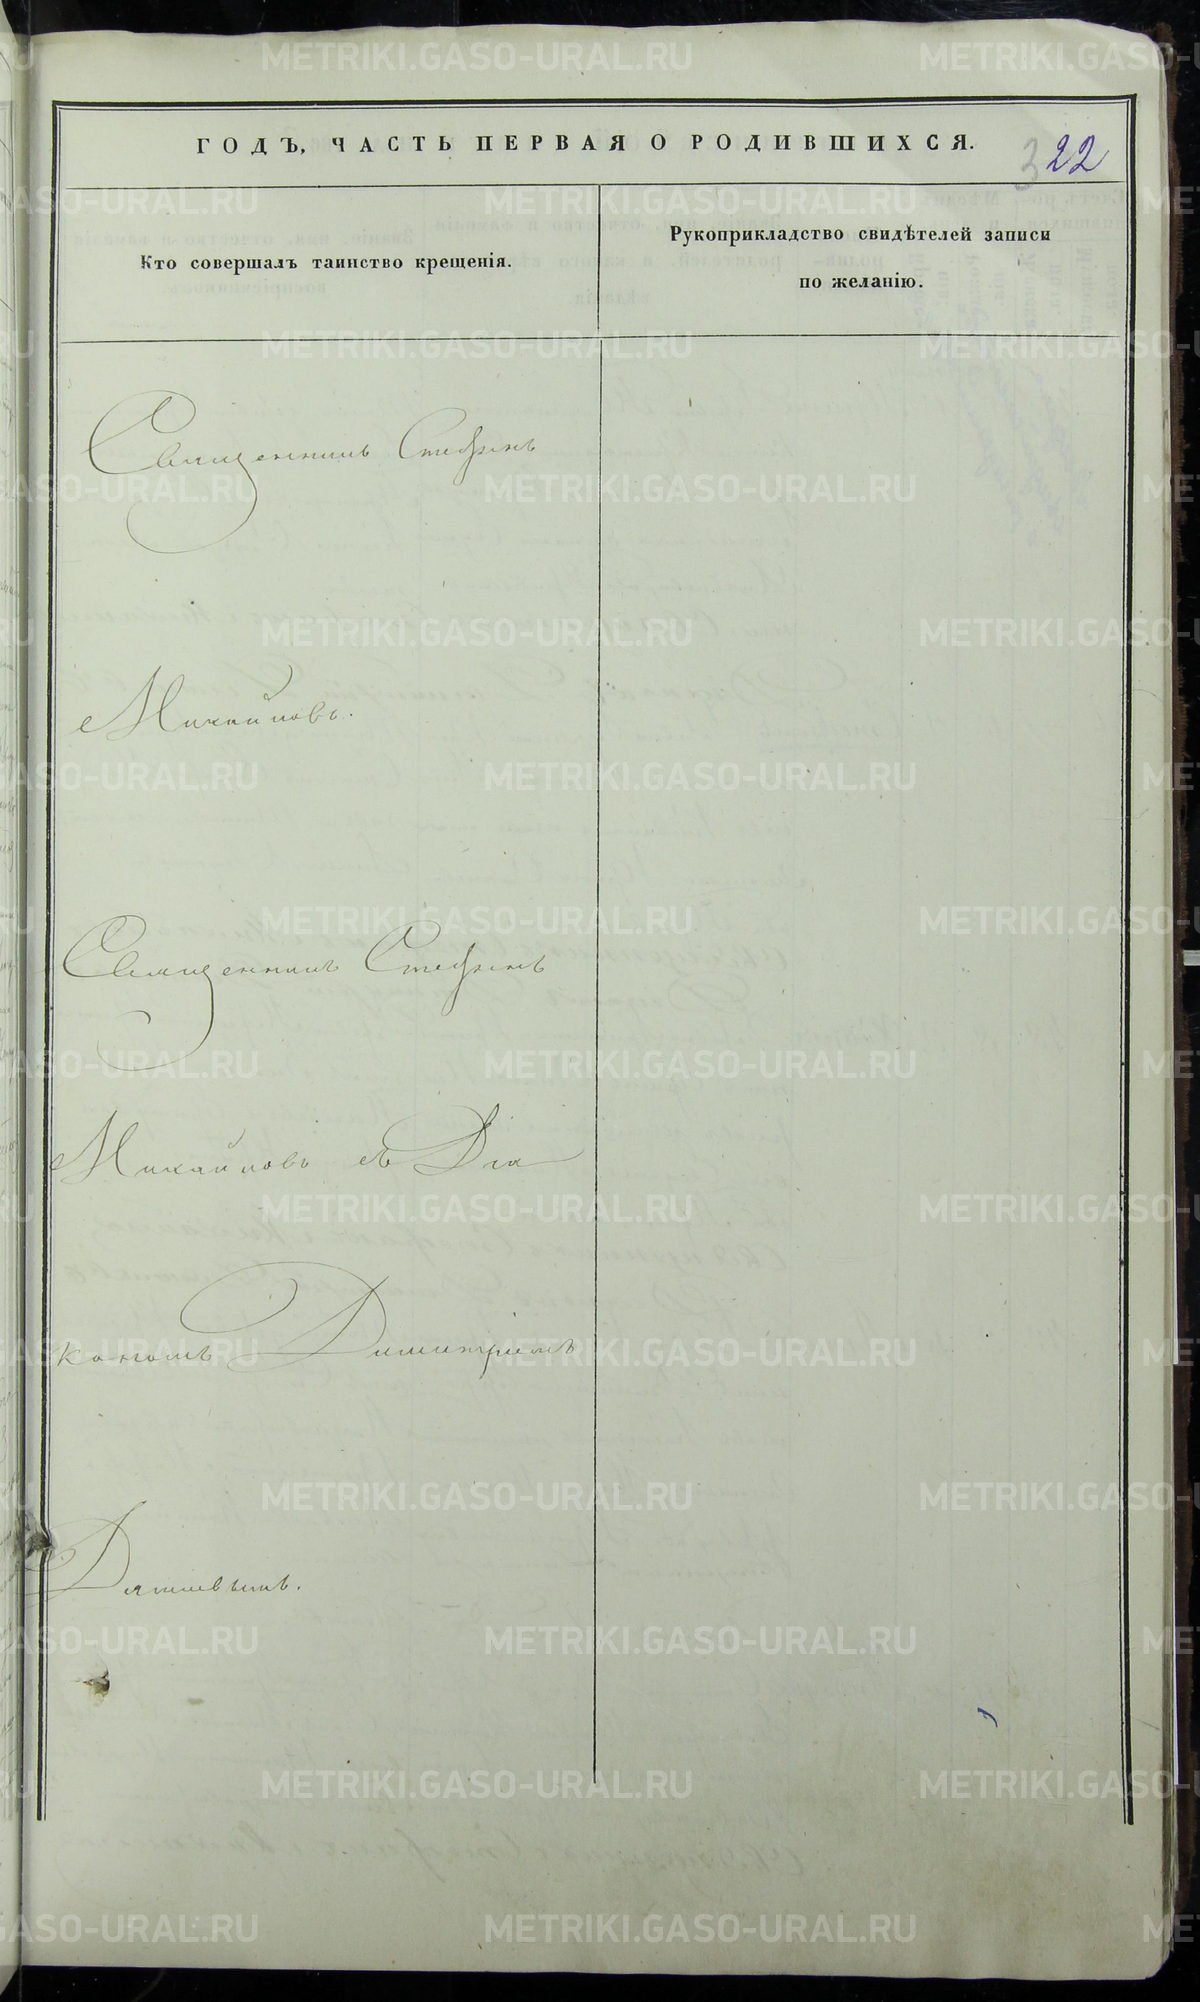 ГОДЪ, ЧАСТЬ ПЕРВАЯ О РОДИВШИХСЯ.
322
Кто совершалъ таинство крещенія.
Рукоприкладство свидѣтелей записи
по желанію.
Священникъ Стефанъ
Михайловъ.
Священникъ Стефанъ
Михайловъ съ Діа
кономъ Димитріемъ
METRIKI.GASO-URAL.RU